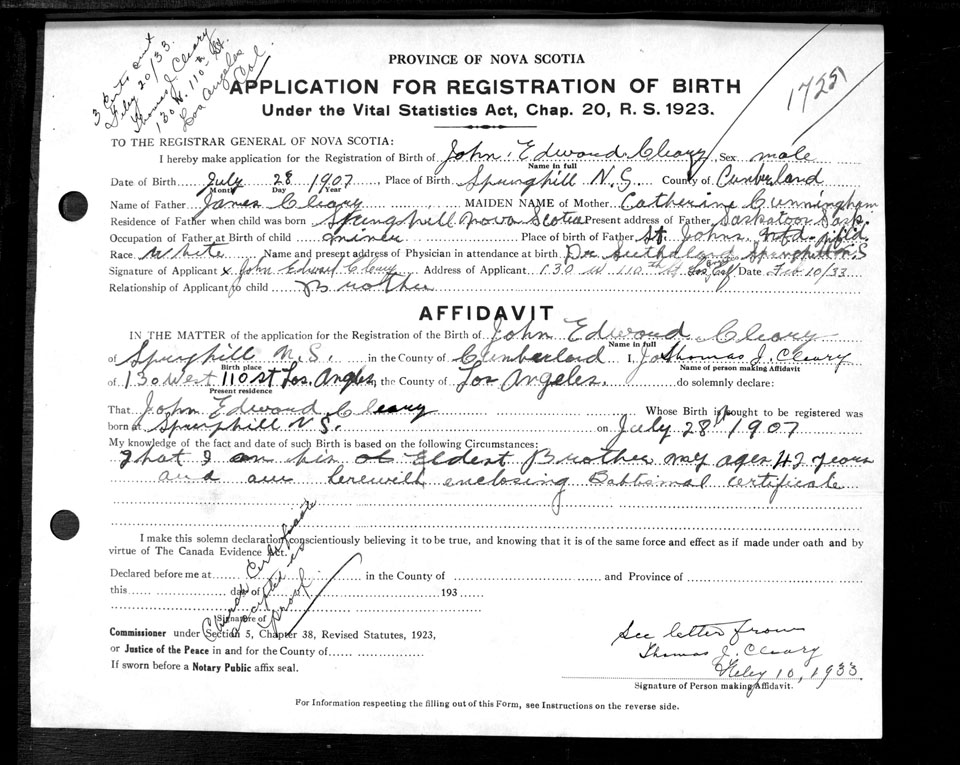 3 Certs out
Feby 20/33.
Thomas J. Cleary
130 W. 110th St.
Los Angeles
Cal
17251
PROVINCE OF NOVA SCOTIA
APPLICATION FOR REGISTRATION OF BIRTH
Under the Vital Statistics Act, Chap. 20, R. S. 1923.
TO THE REGISTRAR GENERAL OF NOVA SCOTIA:
I hereby make application for the Registration of Birth of John Edward Cleary Sex male
Name in full
Date of Birth July 28 1907 Place of Birth Springhill N.S. County of Cumberland
Month Day Year
Name of Father James Cleary MAIDEN NAME of Mother Catherine Cunningham
Residence of Father when child was born Springhill Nova Scotia Present address of Father Saskatoon Sask.
Occupation of Father at Birth of child miner Place of birth of Father St. Johns, Nfd. nfld.
Race white Name and present address of Physician in attendance at birth Dr Springhill N.S
Signature of Applicant x John Edward Cleary Address of Applicant 130 W 110th St Los Angeles Calf Date Feb 10/33
Relationship of Applicant to child Brother
AFFIDAVIT
IN THE MATTER of the application for the Registration of the Birth of John Edward Cleary
Name in full
of Springhill N.S. in the County of Cumberland I, Jo Thomas J. Cleary
Birth place Name of person making Affidavit
of 130 West 110 st Los Angles, in the County of Los Angeles. do solemnly declare:
Present residence
That John Edward Cleary Whose Birth is sought to be registered was
born at Springhill N.S. on July 28th 1907
My knowledge of the fact and date of such Birth is based on the following Circumstances:
That I am his Eldest Brother my age 42 years
and am herewith enclosing Babtismal certificate
I make this solemn declaration conscientiously believing it to be true, and knowing that it is of the same force and effect as if made under oath and by
virtue of The Canada Evidence Act.
Church Certificate
accepted as
proof
Declared before me at in the County of and Province of
this day of 193
Signature of
Commissioner under Section 5, Chapter 38, Revised Statutes, 1923,
or Justice of the Peace in and for the County of
If sworn before a Notary Public affix seal.
See letter from
Thomas J. Cleary
Feby 10, 1933
Signature of Person making Affidavit.
For Information respecting the filling out of this Form, see Instructions on the reverse side.